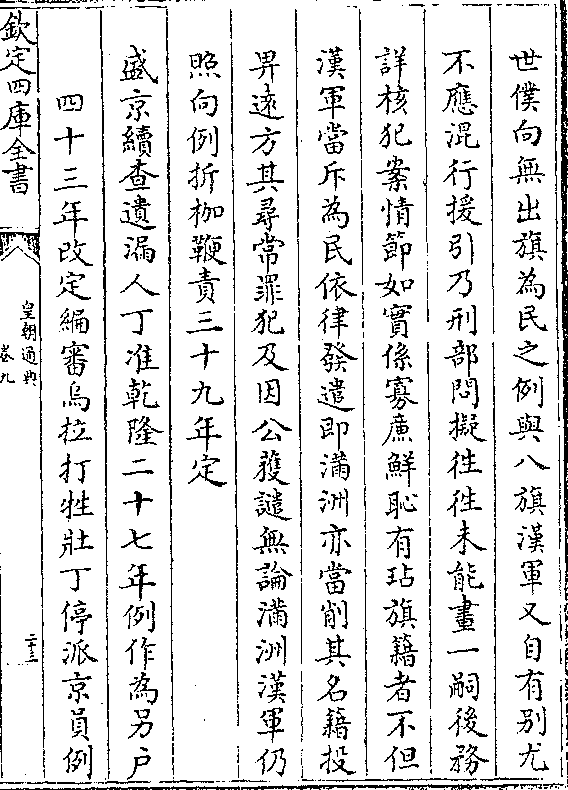 世僕向無出旗為民之例與八旗漢軍又自有别尤
不應混行援引乃刑部問擬徃徃未能畫一嗣後務
詳核犯案情節如實係寡亷鮮恥有玷旗籍者不但
漢軍當斥為民依律發遣即滿洲亦當削其名籍投
畀逺方其尋常罪犯及因公獲譴無論滿洲漢軍仍
照向例折枷鞭責三十九年定
盛京續查遺漏人丁准乾隆二十七年例作為另户
四十三年改定編審烏拉打牲壯丁停派京員例
欽定四庫全書
皇朝通典
卷九
二十三